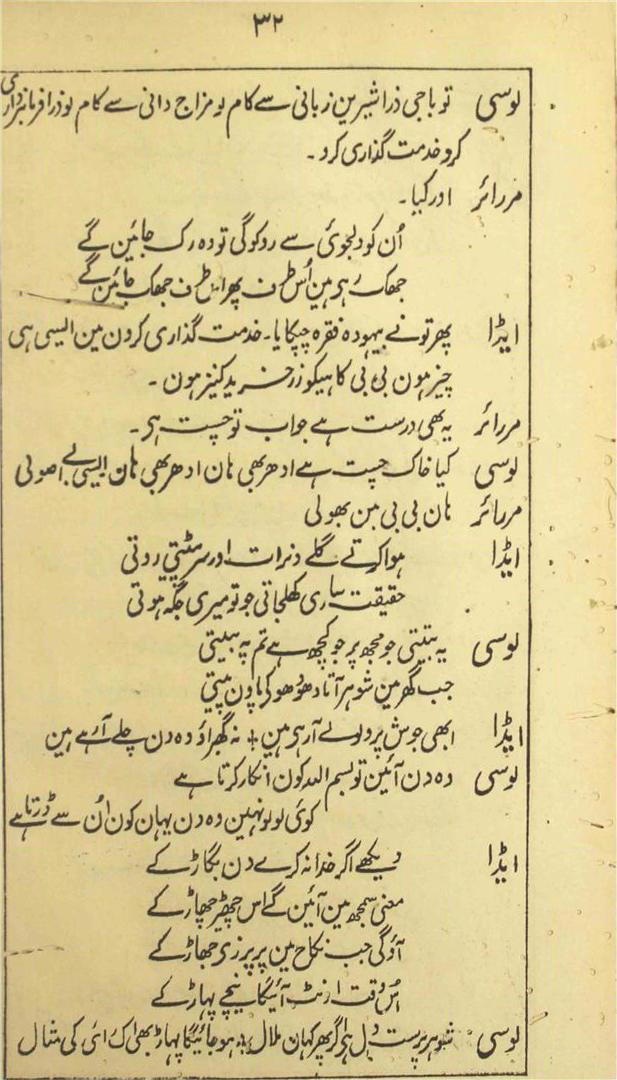 ٣٢
لوسی تو باجی ذرا شیرین زبانی سے کام لو مزاج دانی سے کام لو ذرا فرمانبرداری
کرو خدمت گذاری کرو۔
مررائر اور کیا۔
اُن کو دلجوئی سے روکوگی تو وہ رک جائین گے
جھک رہی ہین اُس طرف پھر اس طرف جھک جائین گے
ایڈا پھر تونے بیہودہ فقرہ چپکایا۔ خدمت گذاری کرون مین ایسی ہی
چیز ہون بی بی کاہیکو زر خرید کنیز ہون۔
مررائر یہ بھی درست ہے جواب تو چست ہی۔
لوسی کیا خاک چست ہے ادھر بھی ہان ادھر بھی ہان ایسی بے اصولی
مررائر ہان بی بی مین بھولی
ایڈا ہوا کے گلے دنرات اور سر پیٹتی روتی
حقیقت ساری کھلجاتی جو تو میری جگہ ہوتی
لوسی یہ بیتیتی جو مجھ پر جو کچھ ہے تم پہ بیتی
جب گھر مین شوہر آتا دھو دھو کی پاون پیتی
ایڈا ابھی جوش پر ولولے آرہی ہین + نہ گھبراؤ وہ دن چلے آرہے ہین
لوسی وہ دن آئین تو بسم اللہ کون انکار کرتا ہے
کوئی لولو نہین وہ دن یہان کون اُن سے ڈرتا ہے
ایڈا دیکھے اگر خدا نہ کرے دن بگاڑ کے
معنی سمجھ مین آئین گے اس چھیڑ چھاڑ کے
آوگی جب نکاح مین پر پرزی جھاڑ کے
اُس وقت اونٹ آئیگا نیچے پہاڑ کے
لوسی شوہر پرست دل ہی اگر پھر کہان ملال + ہو جائیگا پہاڑ بھی اک رائی کی مثال